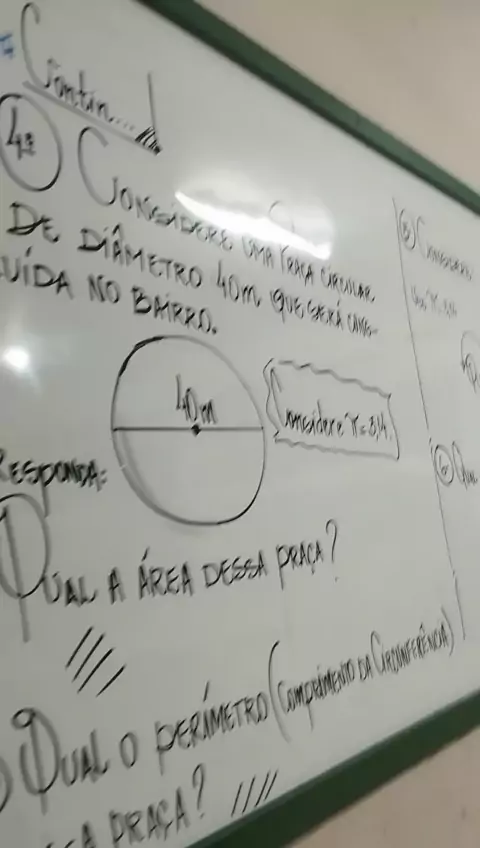 Contin...
4ª Considere uma praça circular
de diâmetro 40m que será cons-
uída no bairro.
40m
Considere π = 3,14.
Responda:
Qual a área dessa praça?
Qual o perímetro (comprimento da circunferência)
praça?
5 Considere
Use π = 3,14